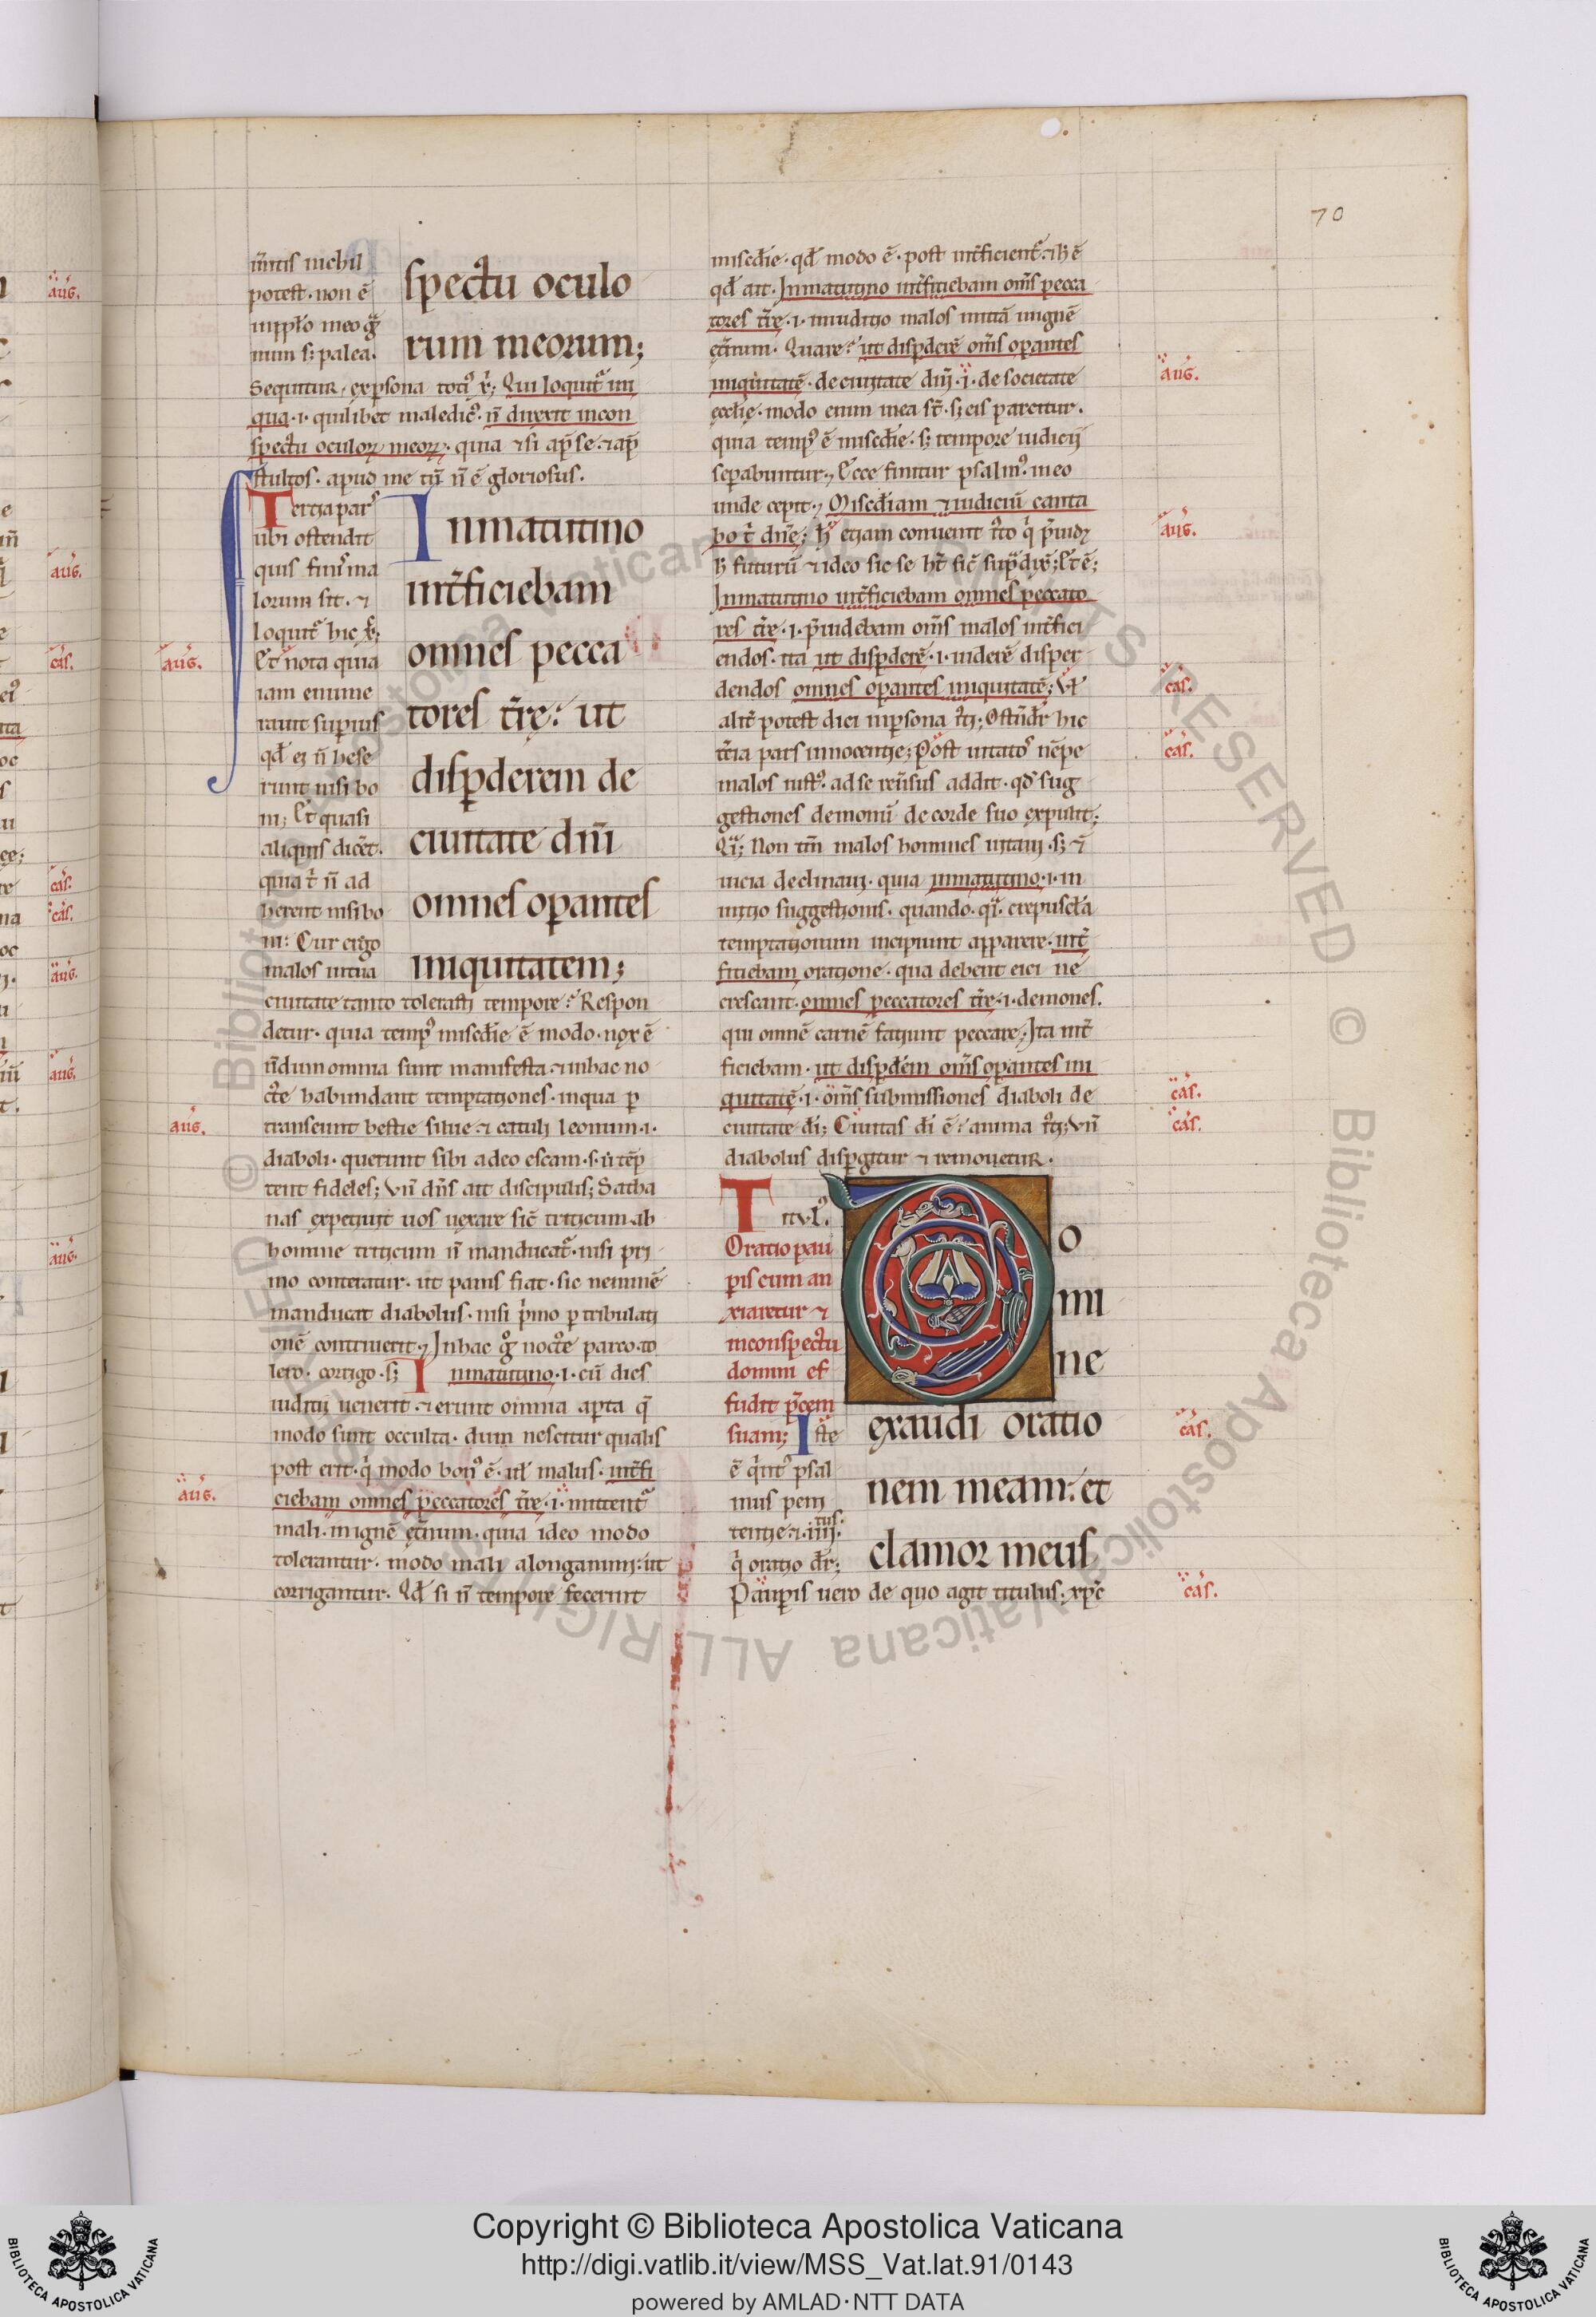 70
uñtis nichil
potest · non ē
spectu oculo
num s; palea.
rum meorum;
Sequitur, ex psona toti⁹ x̄; Qui loquit̃ ini
qua · i · quilibet maledic⁹ · ñ direxit incon
spectu oculoꝝ meoꝝ · quia ⁊ si ap̃ se · ⁊ ap̃
stultos · apud me tñ ñ ē gloriosus.
Tercia pars
ubi ostendit
quis finis ma
lorum sit · ⁊
loquit̃ hic x̄;
Et nota quia
iam enume
rauit superius
qd̃ ei ñ hese
runt nisi bo
ni; Et quasi
aliquis dicẽt.
quia t̃ ñ ad
herent nisi bo
ni: Cur ergo
malos in tua
In matutino
int̃ficiebam
omnes pecca
tores t̃rę: ut
disꝑderem de
ciuitate dñi
omnes oꝑantes
iniquitatem;
ciuitate tanto tolerasti tempore? Respon
detur · quia temp⁹ misc̃die ē modo · nox ē
ñdum omnia sunt manifesta · ⁊ in hac no
cte habundant temptationes · in qua ꝑ
transeunt bestie silue · ⁊ catuli leonum · i ·
diaboli · querunt sibi a deo escam · s · ut tēp
tent fideles; Vñ dñs ait discipulis; Satha
nas expetiuit uos uexare sic̃ triticum · ab
homine triticum ñ manducat̃ · nisi pri
mo conteratur · ut panis fiat · sic neminē
manducat diabolus · nisi p̃mo ꝑ tribulati
onē contriuerit; In hac g̊ nocte parco · to
lero · corrigo · s; In matutino · i · cū dies
iuditii uenerit · ⁊ erunt omnia aꝑta q̃
modo sunt occulta · dum nescitur qualis
post erit · q̃ modo bon⁹ ē · ul̃ malus · int̃fi
ciebam omnes peccatores t̃rę · i · mittent̃
mali · in ignē ęt̃num · quia ideo modo
tolerantur · modo mali a longanimi: ut
corrigantur · Qd̃ si ñ tempore fecerint
misc̃die · qd̃ modo ē · post int̃ficient̃ · ⁊ h̃ ē
qd̃ ait · In matutino int̃ficiebam om̃s pecca
tores t̃rę · i · in iuditio malos mittā in ignē
ęt̃num · Quare? ut disꝑderē om̃s oꝑantes
iniquitatē · de ciuitate dñi · i · de societate
ecclie · modo enim in ea st̃ · s; eis parcitur.
quia temp⁹ ē misc̃die · s; tempore iudicii
seꝑabuntur; Ecce finitur psalm⁹ · in eo
unde cepit; Misc̃diam ⁊ iudiciū canta
bo t̃ dñe;
In matutino int̃ficiebam omnes peccato
res t̃rę · i · p̃uidebam om̃s malos int̃fici
endos · ita ut disꝑderē · i · uiderē disper
dendos omnes oꝑantes iniquitatē; Vl̃
alit̃ potest dici in psona iti; Ostendit̃ hic
t̃cia pars innocentie;
malos iust⁹ · ad se reũsus addit · qd̃ sug
gestiones demonū de corde suo expulit;
Q̃i; Non tm̃ malos homines uitaui · s; ⁊
uicia declinaui · quia in matutino · i · in
initio suggestionis · quando · q̃i · crepuscl̃a
temptationum incipiunt apparere · int̃
fitiebam oratione · qua debent eici ne
crescant · omnes peccatores t̃rę · i · demones.
qui omnē carnē fatiunt peccare; Ita int̃
ficiebam · ut disꝑdem om̃s oꝑantes ini
quitatē · i · om̃s submissiones diaboli de
ciuitate di; Ciuitas di ē? anima iti; Vñ
diabolus disꝑgitur ⁊ remouetur.
Titul⁹.
Oratio pau
ꝑis cum an
xiaretur ⁊
in conspectu
domini ef
fudit p̃cem
suam; Iste
ē q̃int⁹ psal
mus peni
tentie · ⁊ · iiii tus.
q̃ oratio dr̃;
Do
mi
ne
exaudi oratio
nem meam: et
clamor meus
Pauꝑis uero de quo agit titulus: xp̃c
aug.
aug.
aug.
aug.
aug.
aug.
cas.
cas.
cas.
cas.
cas.
cas.
Copyright © Biblioteca Apostolica Vaticana
http://digi.vatlib.it/view/MSS_Vat.lat.91/0143
powered by AMLAD·NTT DATA
BIBLIOTECA APOSTOLICA VATICANA
BIBLIOTECA APOSTOLICA VATICANA
© Biblioteca Apostolica Vaticana ALL RIGHTS RESERVED
© Biblioteca Apostolica Vaticana ALL RIGHTS RESERVED